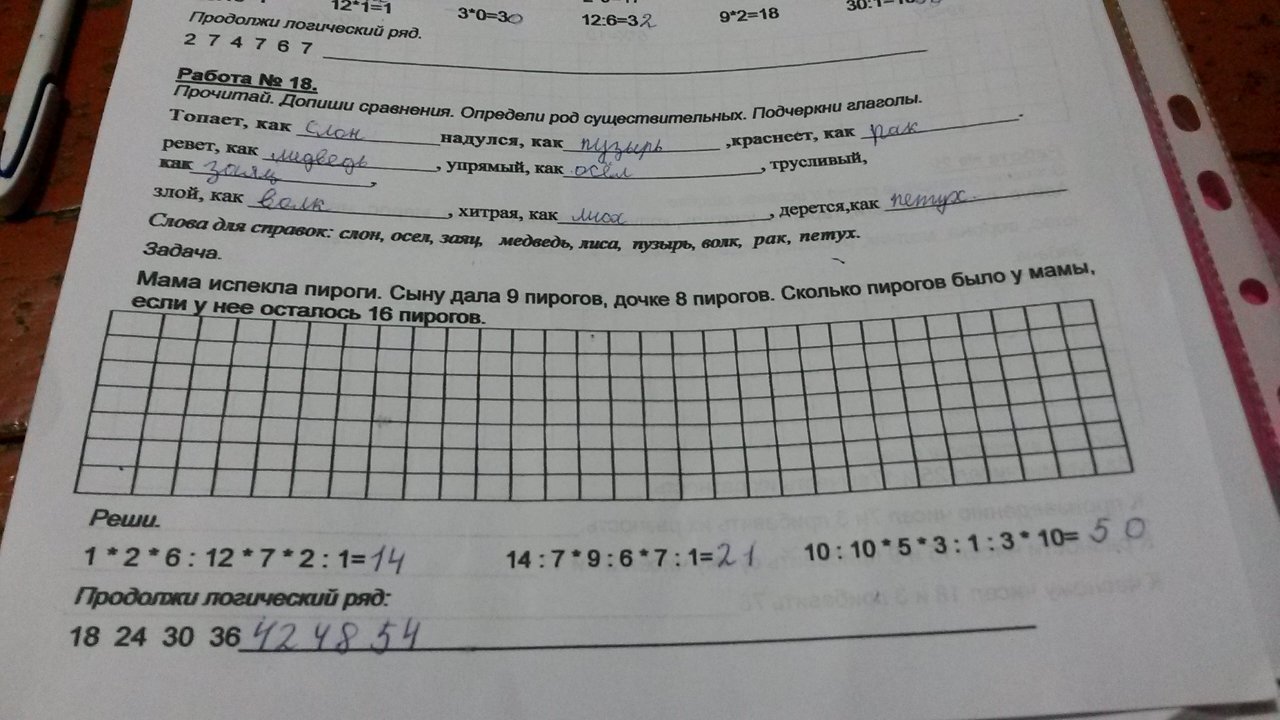 12*1=1 3*0=30 12:6=32 9*2=18
Продолжи логический ряд.
2 7 4 7 6 7
Работа № 18.
Прочитай. Допиши сравнения. Определи род существительных. Подчеркни глаголы.
Топает, как слон надулся, как пузырь ,краснеет, как рак .
ревет, как медведь , упрямый, как осёл , трусливый,
как заяц ,
злой, как волк , хитрая, как лиса , дерется,как петух.
Слова для справок: слон, осел, заяц, медведь, лиса, пузырь, волк, рак, петух.
Задача.
Мама испекла пироги. Сыну дала 9 пирогов, дочке 8 пирогов. Сколько пирогов было у мамы,
если у нее осталось 16 пирогов.
Реши.
1 * 2 * 6 : 12 * 7 * 2 : 1=14 14 : 7 * 9 : 6 * 7 : 1=21 10 : 10 * 5 * 3 : 1 : 3 * 10= 50
Продолжи логический ряд:
18 24 30 36 42 48 54